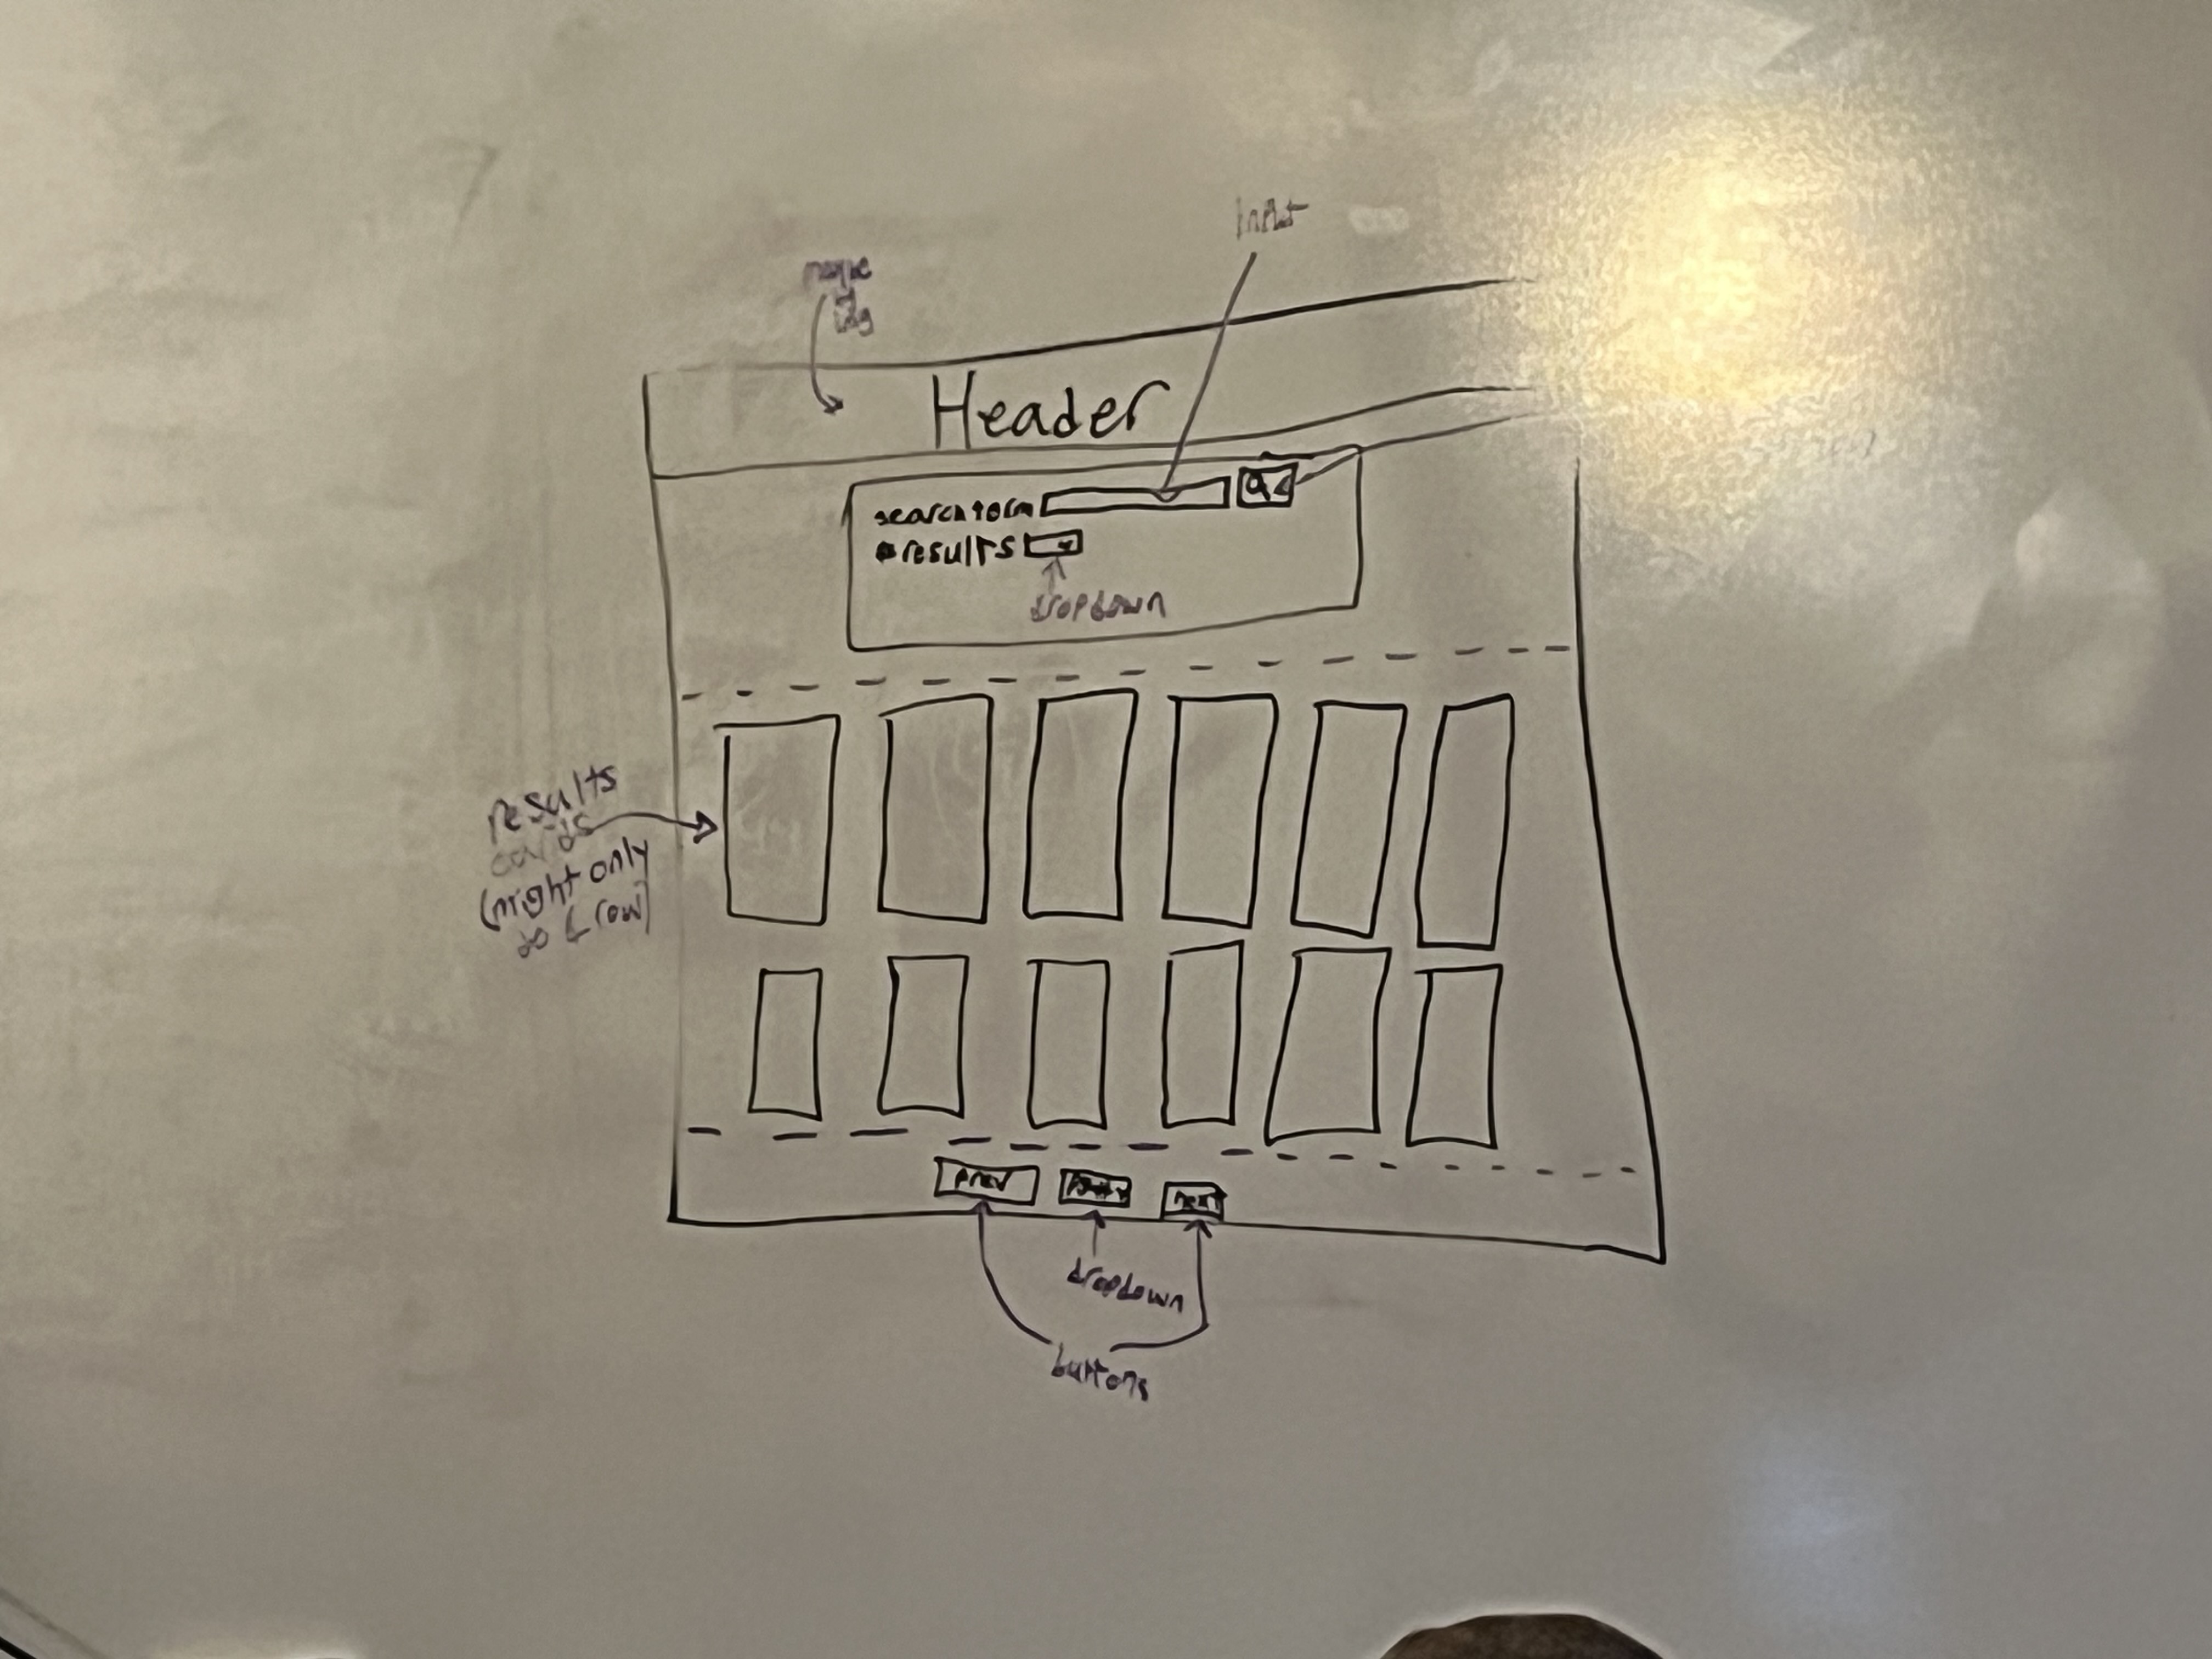 Input
maybe
Header
search term
results
dropdown
results
cards
(might only
do 1 row)
prev
next
dropdown
buttons